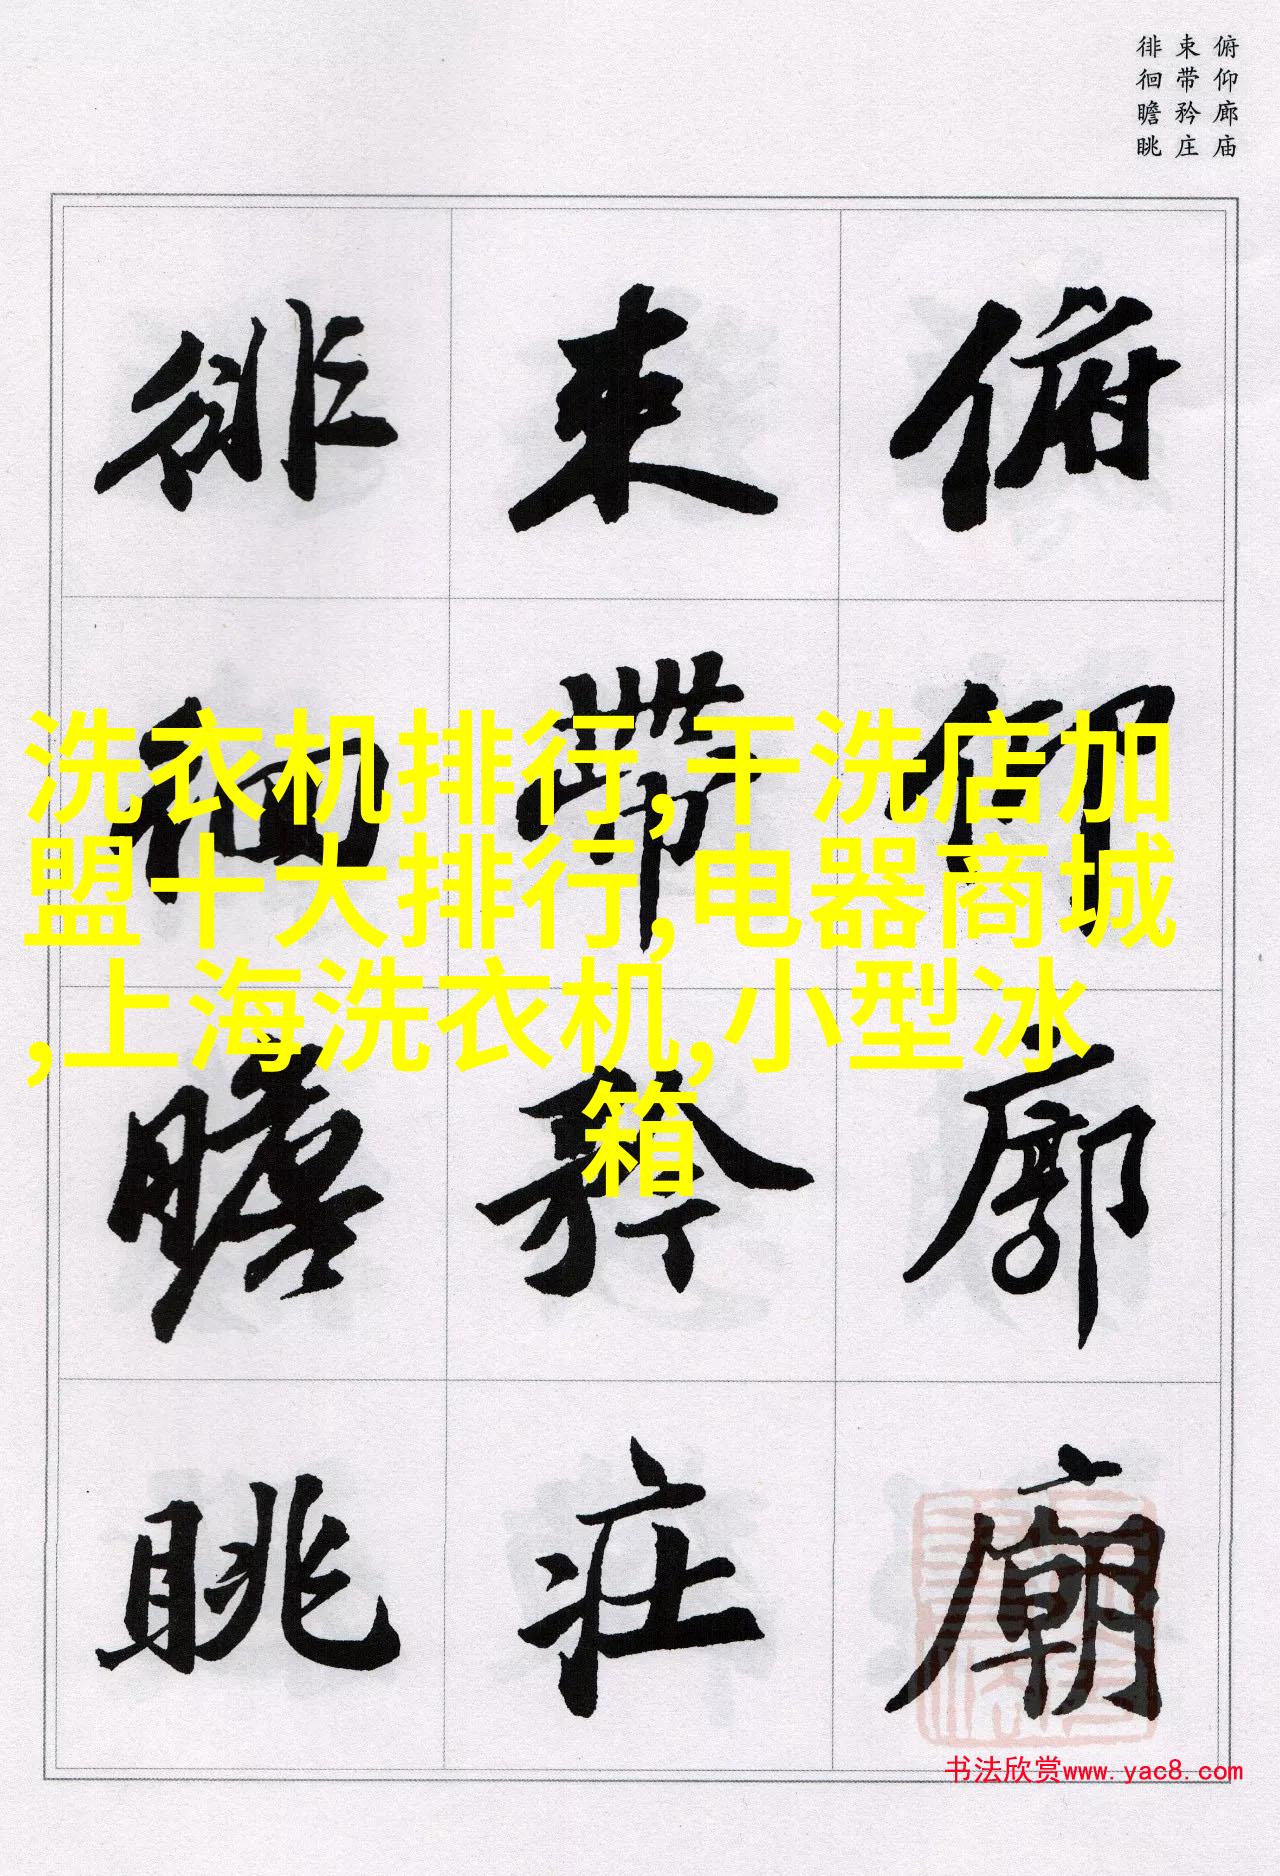 俯仰廊庙
束带矜庄
徘徊瞻眺
俯仰廊廟
束帶矜莊
徘徊瞻眺
洗衣机排行,干洗店加
盟十大排行,电器商城
,上海洗衣机,小型冰
箱
书法欣赏www.yac8.com